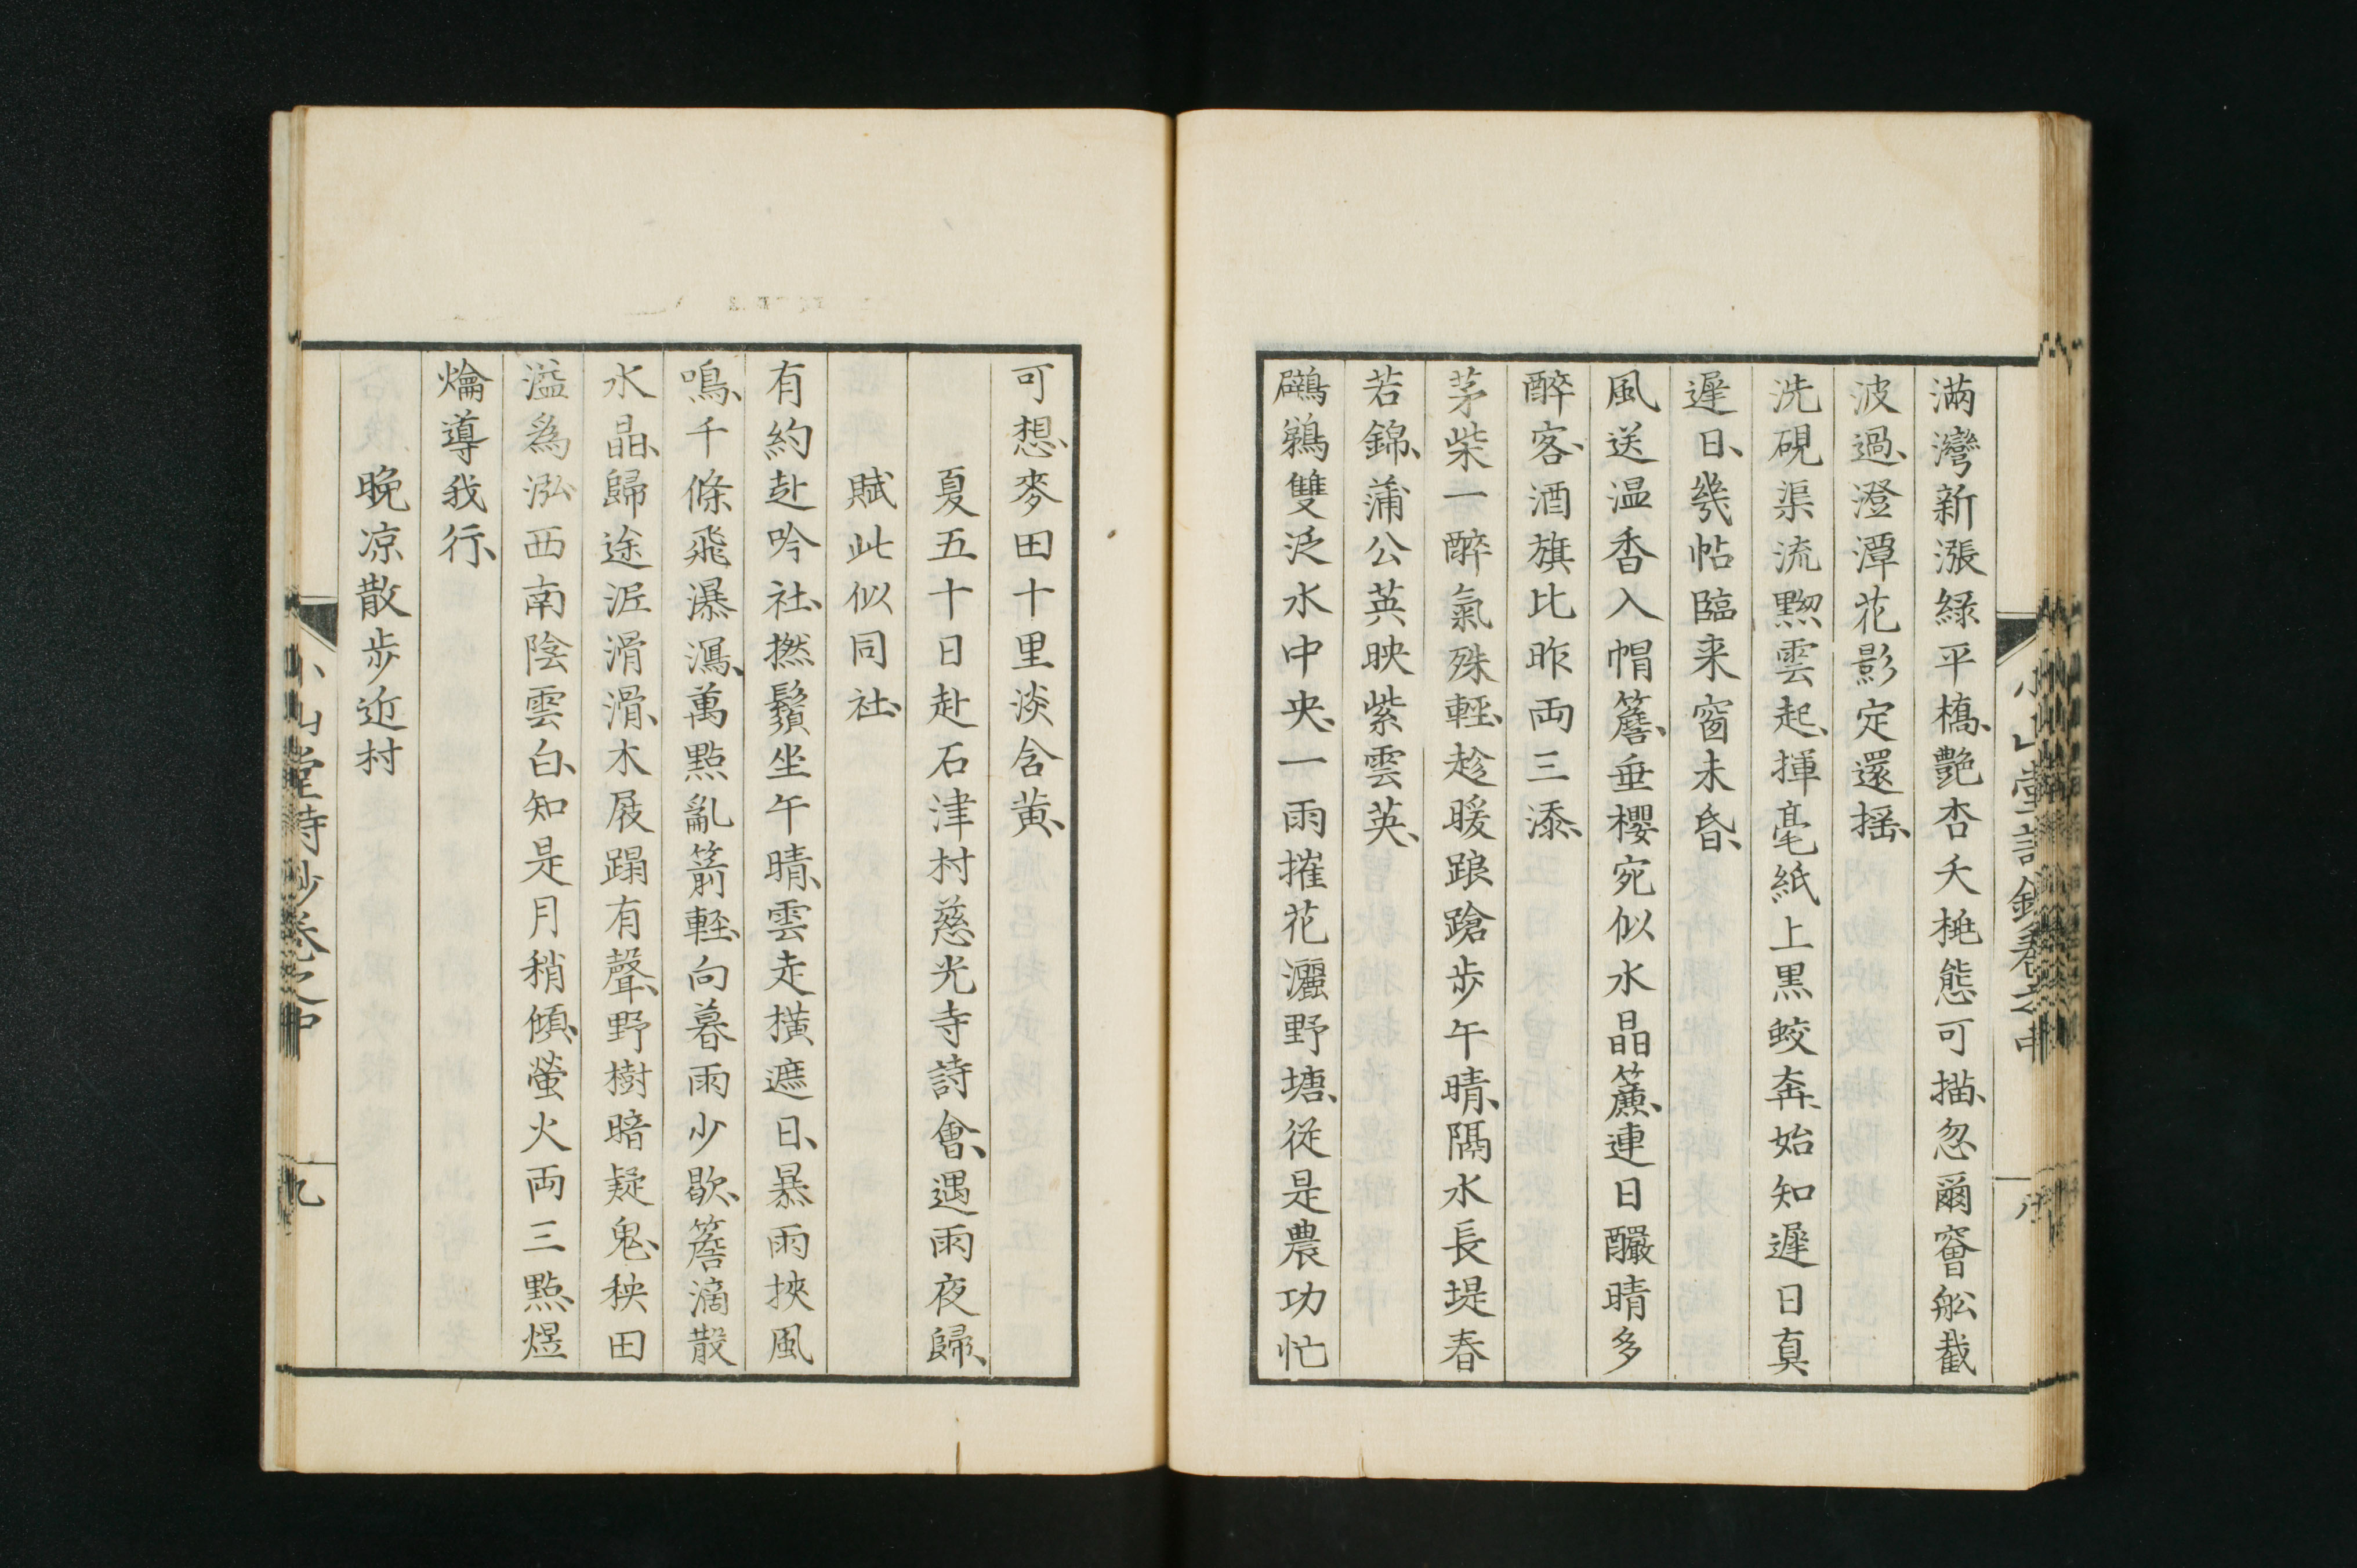 滿灣新漲緑平橋、艶杏夭桃態可描、忽爾窅舩截
波過、澄潭花影定還揺、
洗硯渠流黟雲起、揮毫紙上黒蛟奔、始知遲日真
遲日、幾帖臨来窗未昏、
風送温香入帽簷、垂櫻宛似水晶簾、連日釅晴多
醉客、酒旗比昨両三添、
茅柴一醉氣殊輕、趁暖踉蹌歩午晴、隔水長堤春
若錦、蒲公英映紫雲英、
鸊鵜雙泛水中央、一雨摧花灑野塘、従是農功忙
可想、麥田十里淡含黄、
夏五十日赴石津村慈光寺詩會、遇雨夜歸、
賦此似同社、
有約赴吟社、撚鬚坐午晴、雲走横遮日、暴雨挾風
鳴、千條飛瀑瀉、萬點亂箭輕、向暮雨少歇、簷滴散
水晶、歸途泥滑滑、木屐蹋有聲、野樹暗疑鬼、秧田
溢為泓、西南陰雲白、知是月稍傾、螢火両三點、煜
爚導我行、
晩凉散歩近村
小山堂詩鈔卷之中
九